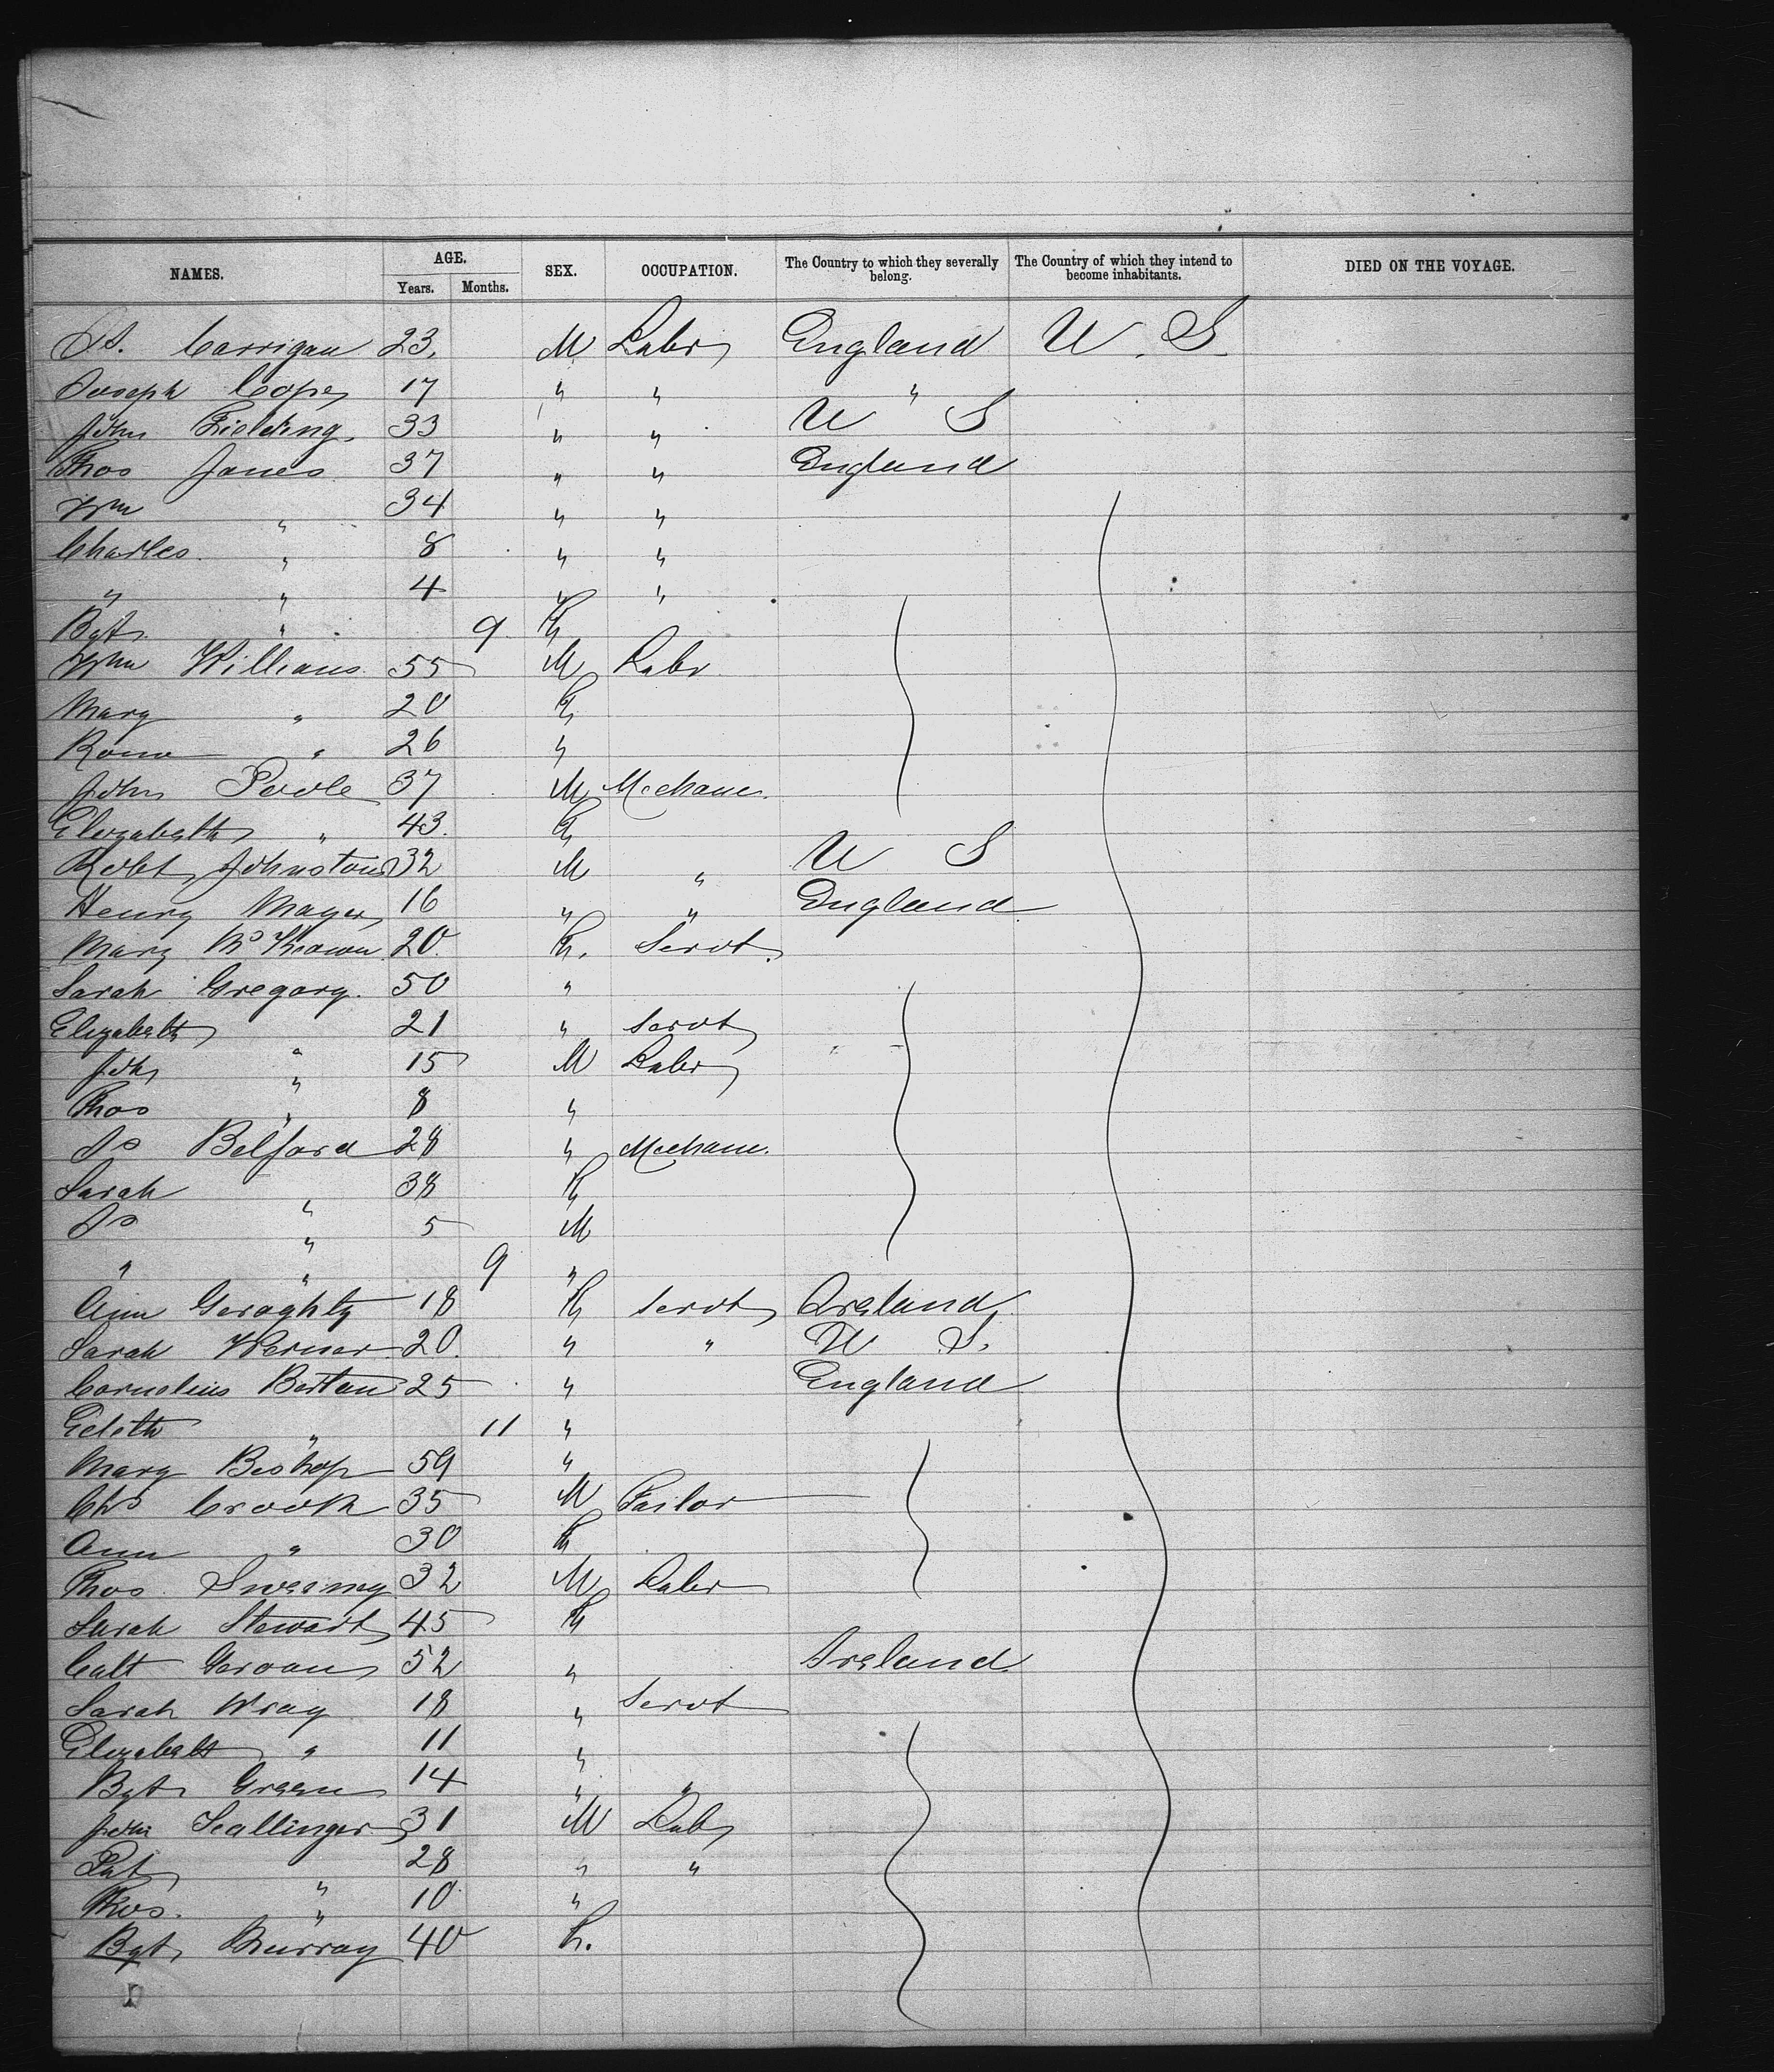 NAMES. AGE. SEX. OCCUPATION. The Country to which they severally belong. The Country of which they intend to become inhabitants. DIED ON THE VOYAGE.
Years. Months.
Carrigan 23. M Labr England U. S.
Joseph Cope 17 " " "
John Fielding 33 " " U S
Thos Jones 37 " " England
Wm " 34 " "
Charles " 8 " "
" " 4 " "
Bgt " 9 F
Wm Williams 55 M Labr
Mary " 20 F
" 26 "
John Poole 37 M Mechanc.
Elizabeth " 43. F
Robt Johnston 32 M " U S
Henry 16 " " England
Mary McKeown 20. F. Servt.
Sarah Gregory. 50 "
Elizabeth " 21 " Servt
Joh " 15 M Labr
Thos " 8 "
Js Belford 28 " Mechanc.
Sarah " 38 F
Js " 5 M
" " 9 "
Ann Geraghty 18 F Servt Ireland
Sarah Werner 20. " " U S.
Cornelius 25 " England
Edith " 11 "
Mary Bishop 59 "
Chs Crook 35 M Tailor
Ann " 30 F
Thos Sweeney 32 M Labr
Sarah Stewart 45 F
52 " Ireland
Sarah Wray 18 " Servt
Elizabeth " 11 "
Bgt Green 14 " "
John 31 M Lab
Pat " 28 " "
Thos. " 10 "
Bgt Murray 40 F.